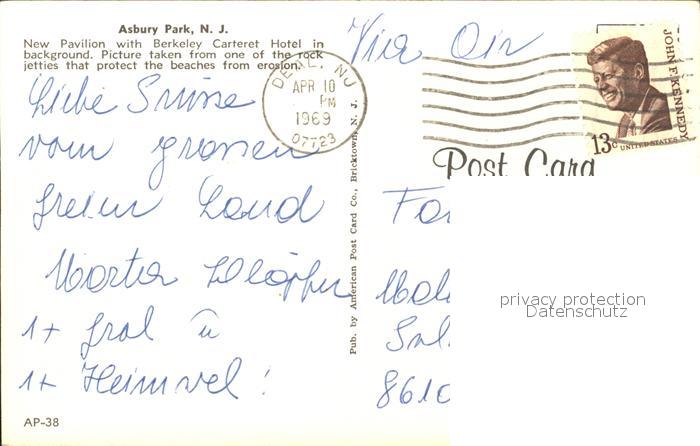 Asbury Park, N. J.
New Pavilion with Berkeley Carteret Hotel in
background. Picture taken from one of the rock
jetties that protect the beaches from erosion.
Via Air
DEAL NJ
APR 10
PM
1969
07723
JOHN F. KENNEDY
13c UNITED STATES
Post Card
Liebe Grüsse
vom grossen
freien Land
1 +
1 +
861
Pub. by American Post Card Co., Bricktown, N. J.
privacy protection
Datenschutz
AP-38